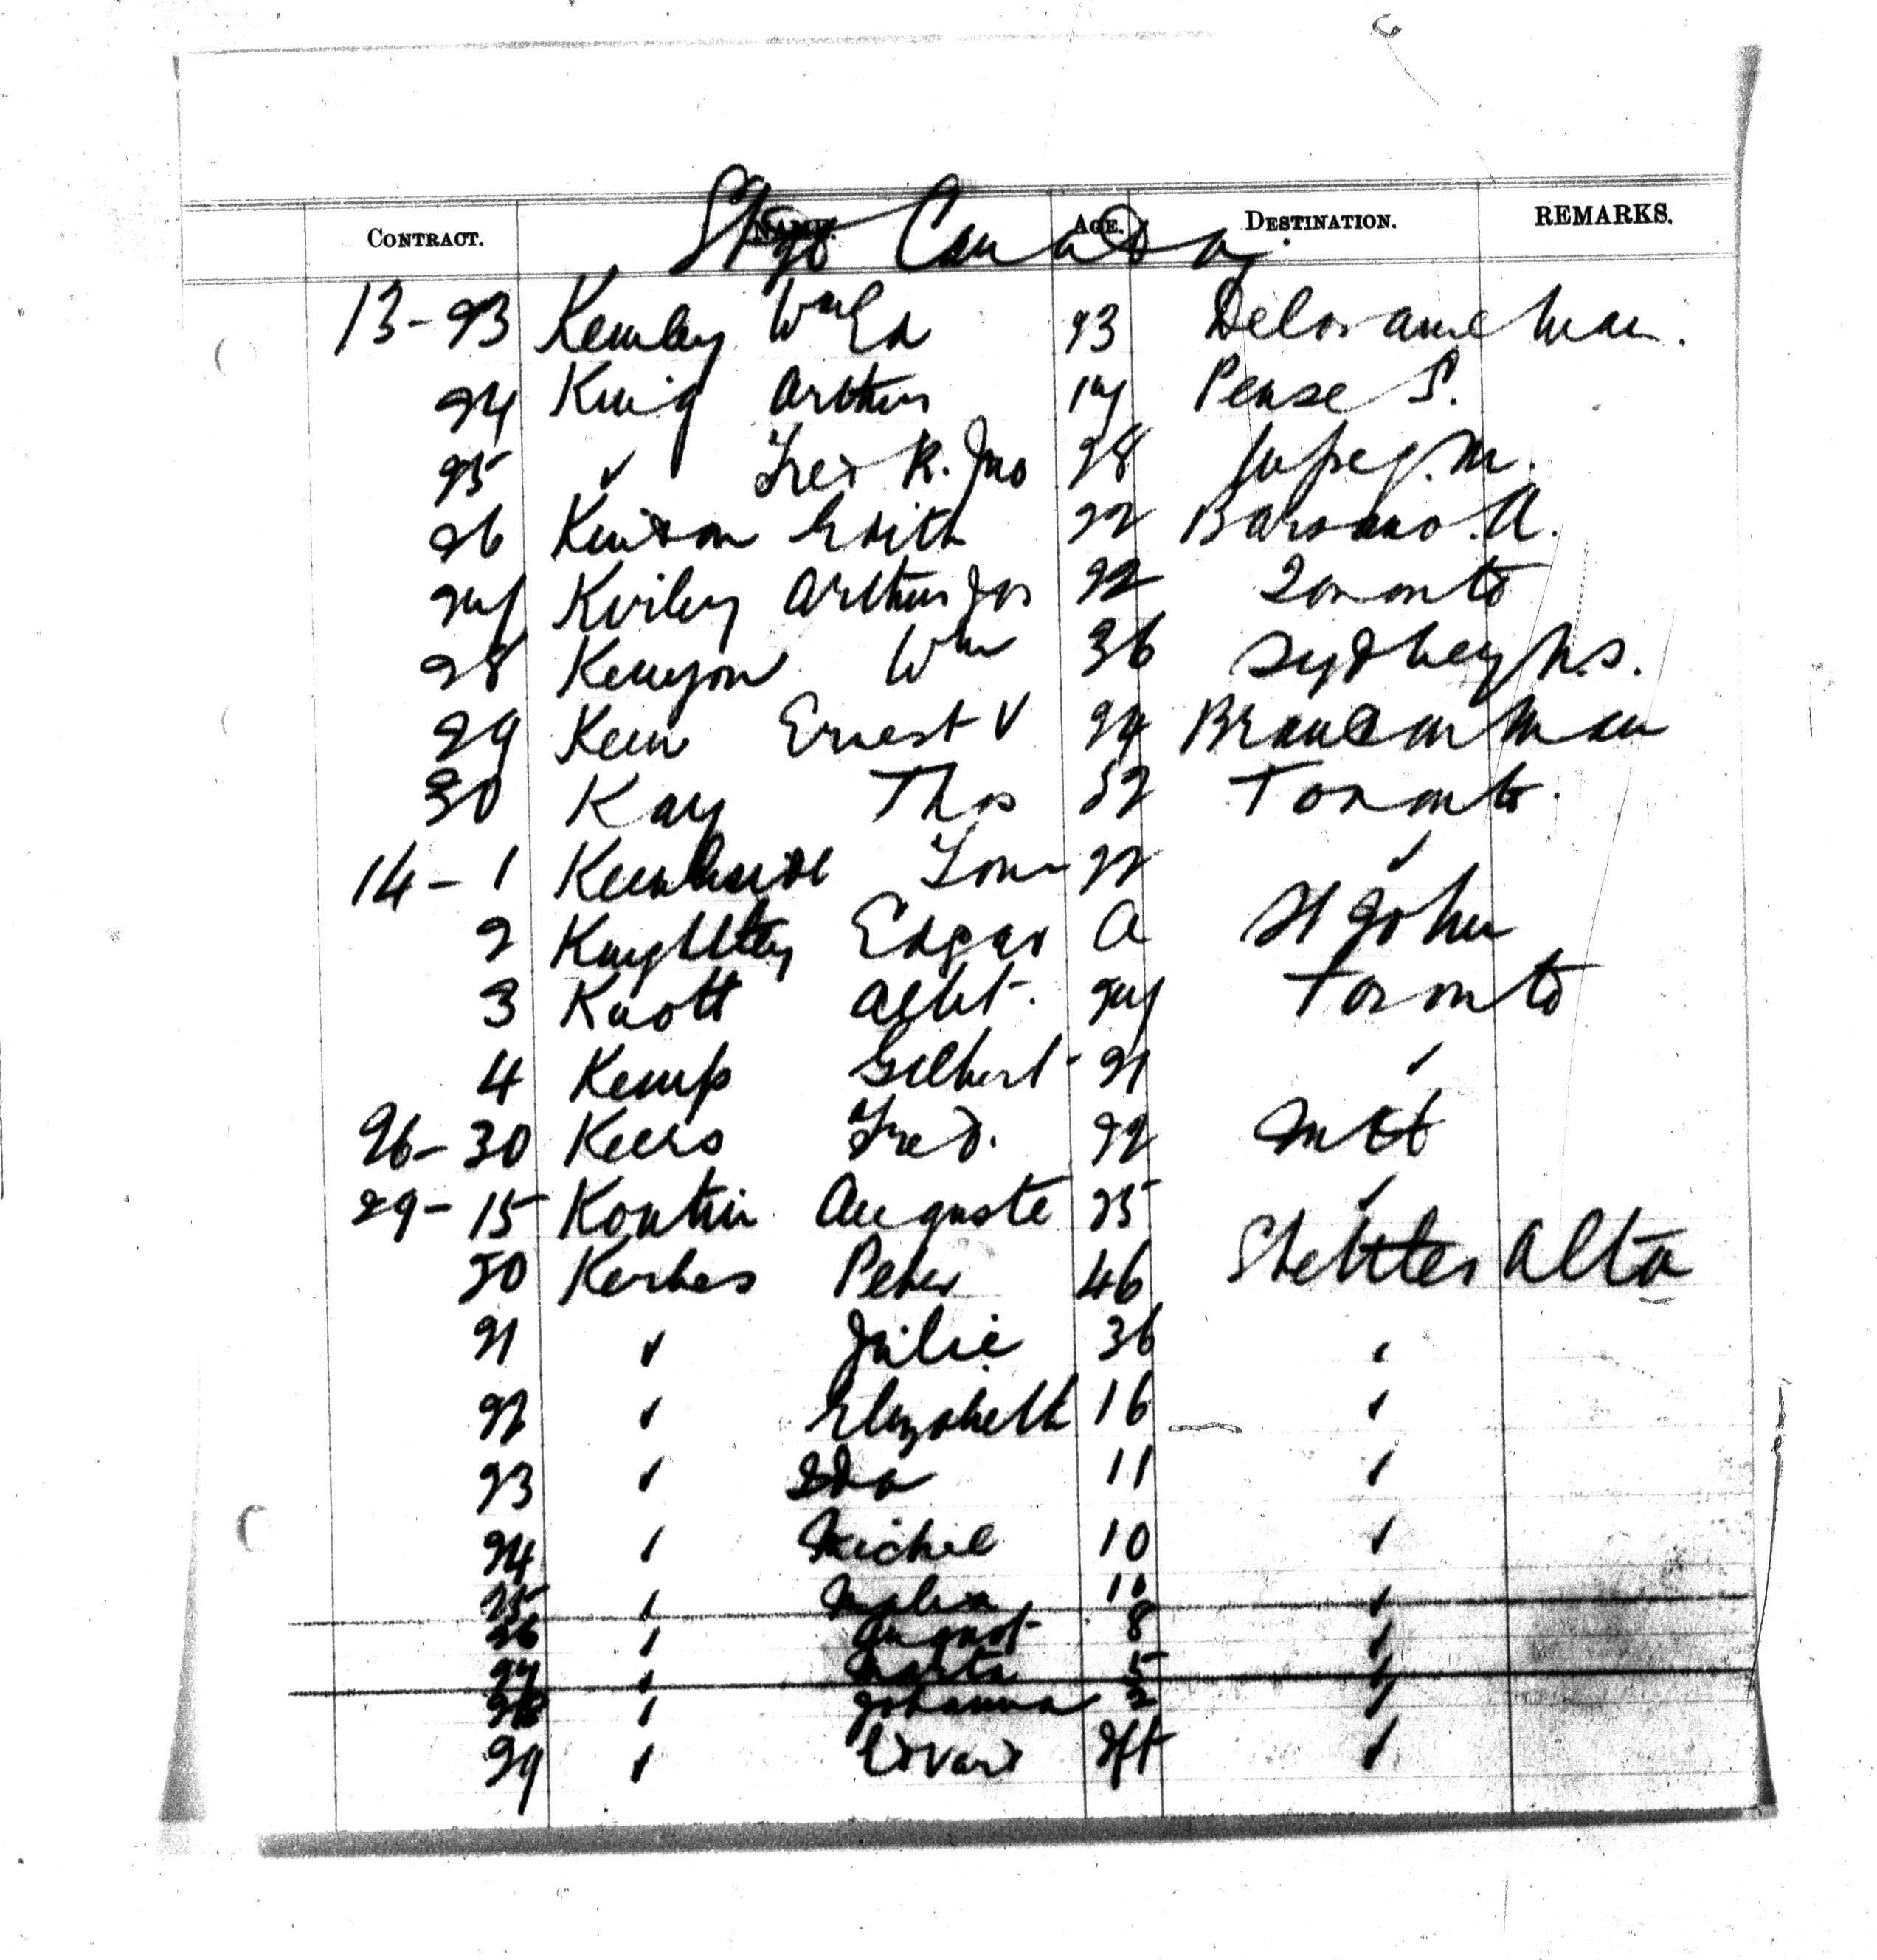 Stge Canada
CONTRACT. NAME. AGE. DESTINATION. REMARKS.
13-23 Kemley Wm Ed 23 Deloraine Man.
24 King Arthur 17 Pense S.
25 " Fred R. Jno 28 Wpeg. M.
26 Edith 22 A.
27 Arthur Jas 22 Toronto
28 Kenyon Wm 36 Sydney N.S.
29 Ernest V 24 Brandon Man
30 Kay Thos 52 Toronto.
14-1 22 "
2 Edgar A St John
3 Knott Albt. 27 Toronto
4 Kemp Gilbert 21 "
26-30 Keers Fred. 22 Mtl
29-15 Auguste 25 "
20 Kerbes Peter 46 Stettler Alta
21 " Julie 36 "
22 " Elizabeth 16 "
23 " Ida 11 "
24 " Michel 10 "
25 " 10 "
26 " August 8 "
27 " Marta 5 "
28 " Johanna 2 "
29 " Edvard Inft "